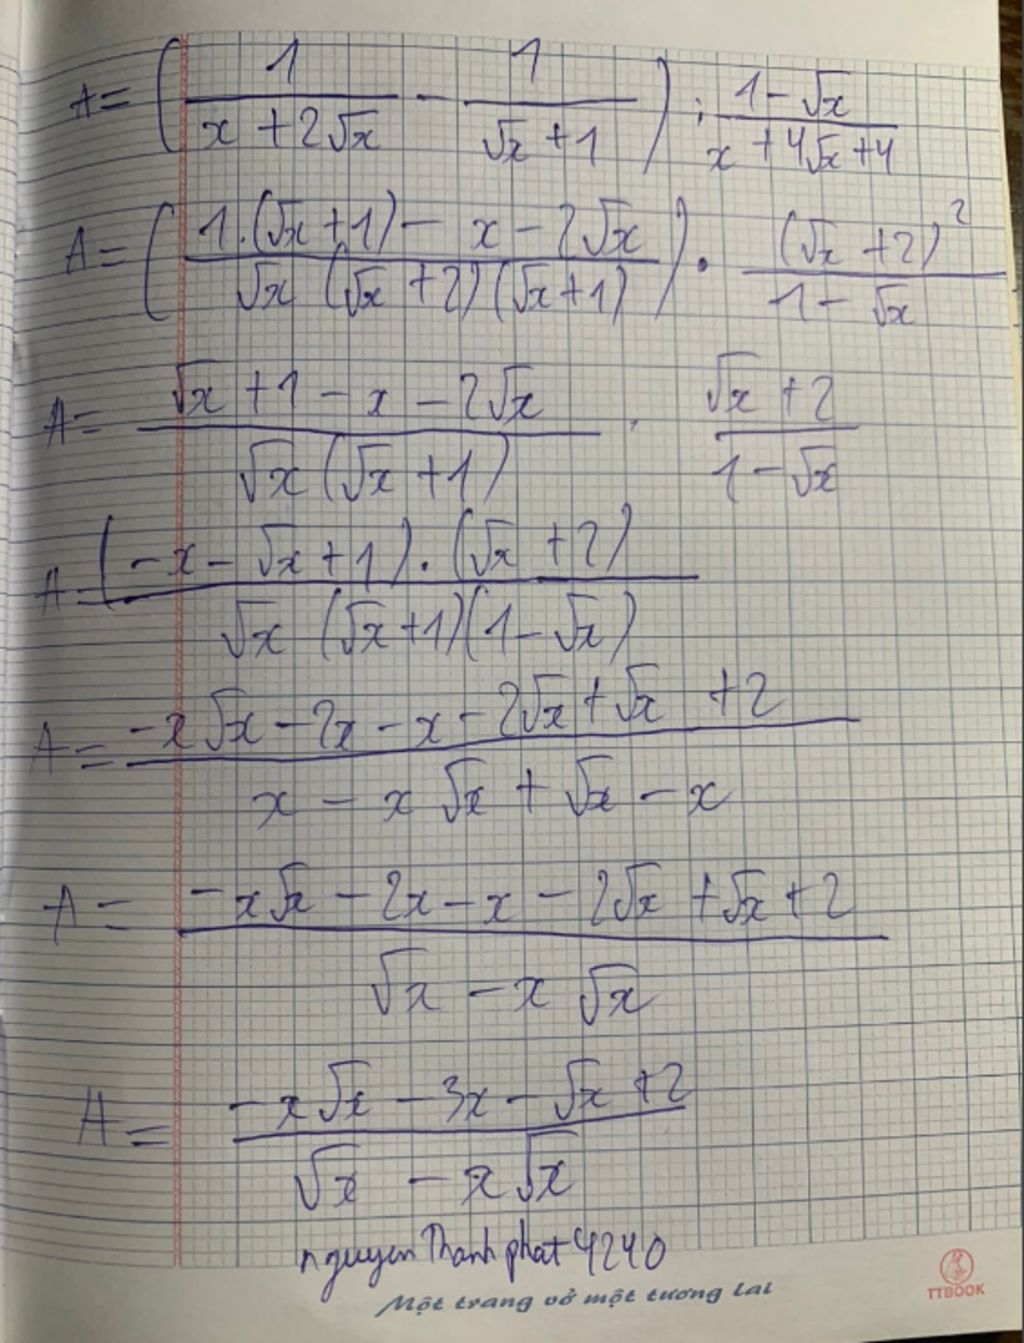 A = ( 1 / (x + 2√x) - 1 / (√x + 1) ) : (1 - √x) / (x + 4√x + 4)
A = ( (1.(√x + 1) - x - 2√x) / (√x (√x + 2)(√x + 1)) ) . (√x + 2)² / (1 - √x)
A = (√x + 1 - x - 2√x) / (√x (√x + 1)) . (√x + 2) / (1 - √x)
A = ((-x - √x + 1) . (√x + 2)) / (√x (√x + 1)(1 - √x))
A = (-x√x - 2x - x - 2√x + √x + 2) / (x - x√x + √x - x)
A = (-x√x - 2x - x - 2√x + √x + 2) / (√x - x√x)
A = (-x√x - 3x - √x + 2) / (√x - x√x)
nguyen Thanh phat 4240
Một trang vở một tương lai
TTBOOK